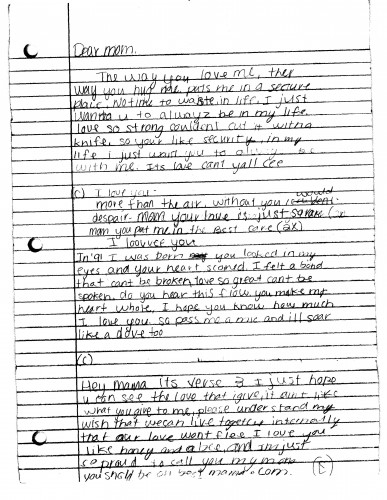 Dear mom.
The way you love me, the
way you hug me, puts me in a secure
place. No time to waste in life. I just
wanna u to alwayz be in my life.
love so strong couldent cut it with a
knife. so your like security, in my
life i just want you to
with me. Its love cant yall cee
(c) I love you.
more than the air. without you would
despair. mom your love is just so rare
mom you put me in the best care (2x)
I louvee you
In 91 I was born you looked in my
eyes and your heart scored. I felt a bond
that cant be broken, love so great cant be
spoken, do you hear this flow. you make my
heart whole, I hope you know how much
I love you. so pass me a nue and ill soar
like a dove too
(c)
Hey mama its verse 3 I just hope
u can see the love that i give, it aint like
what you give to me, please understand my
wish that we can live together internally
that our love wont flee I love you
like honey and a bee, and im just
so proud to call you my mom
you should be on best mama.com.